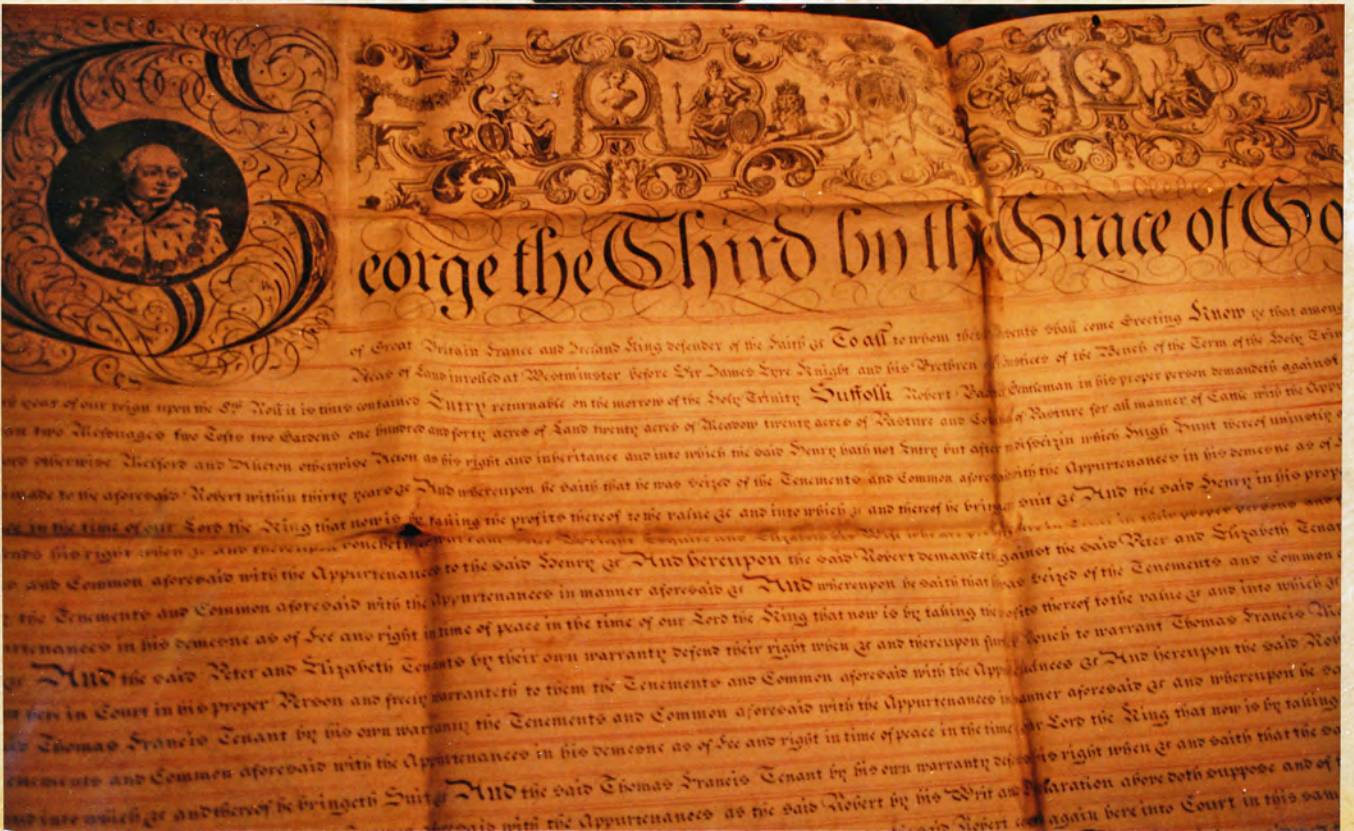 George the Third by the Grace of Go
of Great Britain France and Ireland King defender of the Faith &c To all to whom these Presents shall come Greeting Know ye that among
Pleas of Land inrolled at Westminster before Sir James Eyre Knight and his Brethren Justices of the Bench of the Term of the Holy Trin
year of our reign upon the 8th Roll it is thus contained Entry returnable on the morrow of the Holy Trinity Suffolk Robert Gentleman in his proper person demandeth against
two Messuages two Tofts two Gardens one hundred and forty acres of Land twenty acres of Meadow twenty acres of Pasture and Common of Pasture for all manner of Cattle with the App
otherwise Melford and Aketon otherwise Acton as his right and inheritance and into which the said Henry hath not Entry but after disseizin which Hugh Hunt thereof unjustly
made to the aforesaid Robert within thirty years &c And whereupon he saith that he was seized of the Tenements and Common aforesaid with the Appurtenances in his demesne as of
in the time of our Lord the King that now is by taking the profits thereof to the value &c and into which &c and thereof he bringeth suit &c And the said Henry in his prop
his right when &c and thereupon voucheth to warrant and Elizabeth his Wife who in their proper persons and
and Common aforesaid with the Appurtenances to the said Henry &c And hereupon the said Robert demandeth against the said Peter and Elizabeth Tenan
the Tenements and Common aforesaid with the Appurtenances in manner aforesaid &c And whereupon he saith that he was seized of the Tenements and Common
urtenances in his demesne as of Fee and right in time of peace in the time of our Lord the King that now is by taking the profits thereof to the value &c and into which &c
&c And the said Peter and Elizabeth Tenants by their own warranty defend their right when &c and thereupon further vouch to warrant Thomas Francis
here in Court in his proper Person and freely warranteth to them the Tenements and Common aforesaid with the Appurtenances &c And hereupon the said Rob
Thomas Francis Tenant by his own warranty the Tenements and Common aforesaid with the Appurtenances in manner aforesaid &c and whereupon he sa
enements and Common aforesaid with the Appurtenances in his demesne as of Fee and right in time of peace in the time of our Lord the King that now is by taking
and into which &c and thereof he bringeth Suit &c And the said Thomas Francis Tenant by his own warranty defends his right when &c and saith that the
aforesaid with the Appurtenances as the said Robert by his Writ and Declaration above doth suppose and of
said Robert again here into Court in this sam